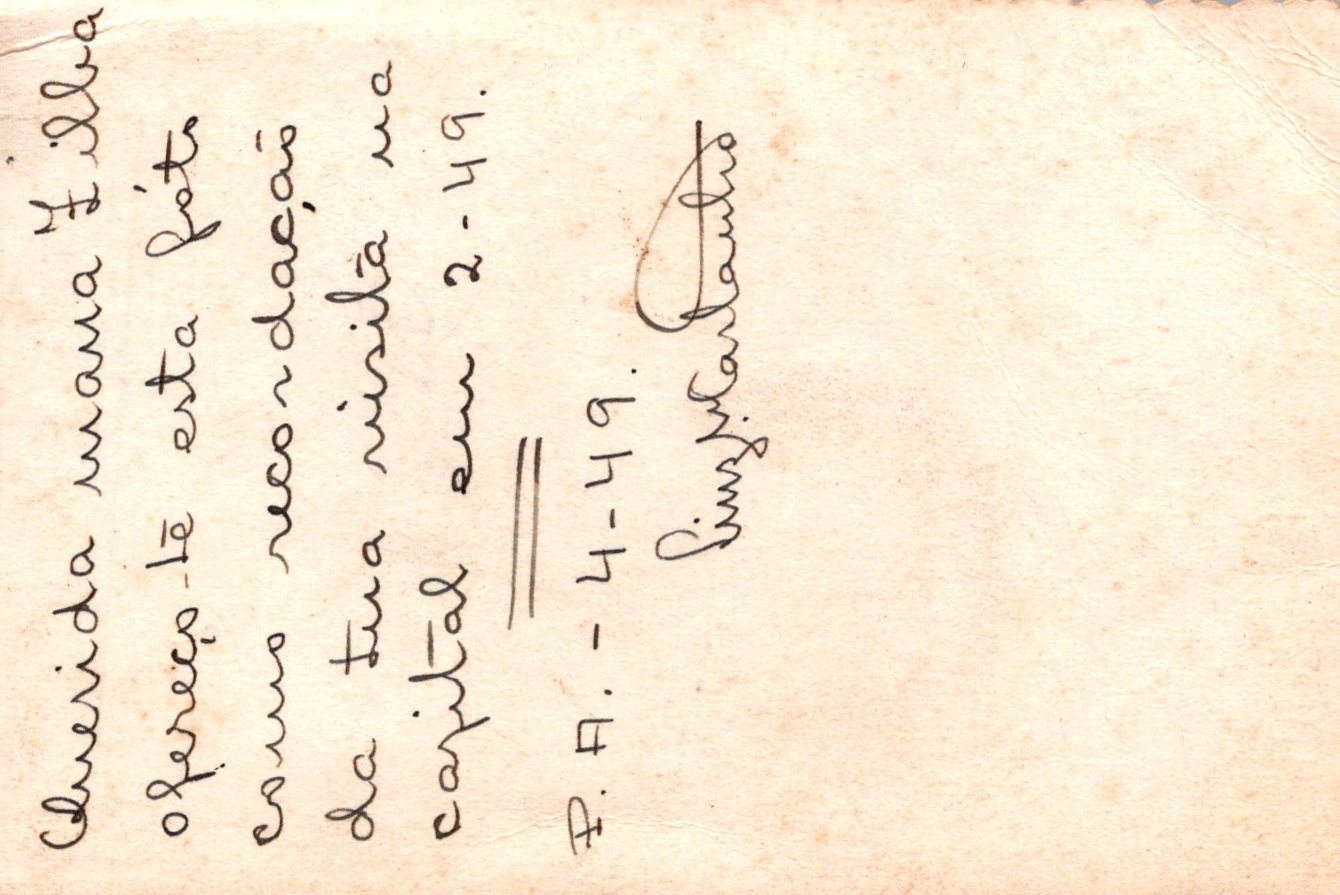 Querida maria Zilba
ofereço-te esta fóto
como recordação
da tua visita na
capital em 2-49.
P. A. - 4-4-49.